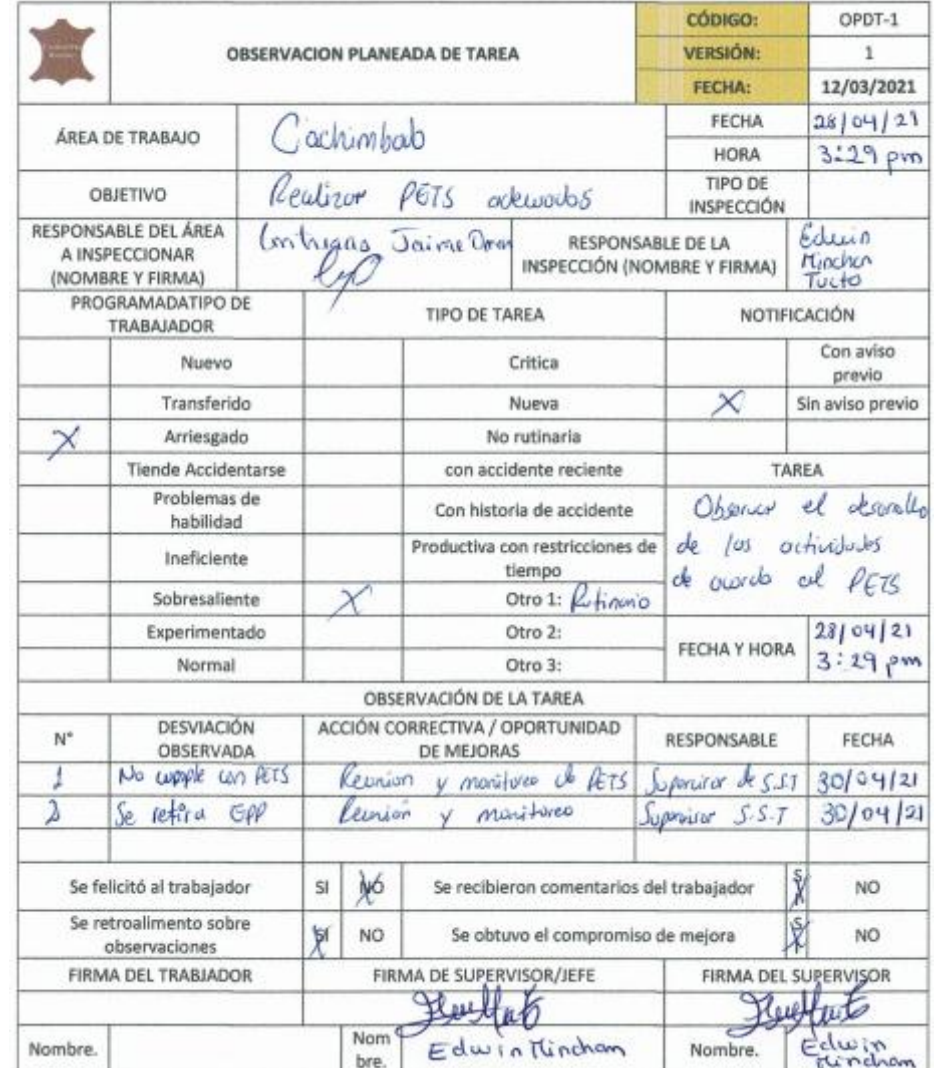 OBSERVACION PLANEADA DE TAREA
CÓDIGO: OPDT-1
VERSIÓN: 1
FECHA: 12/03/2021
ÁREA DE TRABAJO Cachimbab FECHA 28/04/21
HORA 3:29 pm
OBJETIVO Realizar PETS adewados TIPO DE INSPECCIÓN
RESPONSABLE DEL ÁREA
A INSPECCIONAR
(NOMBRE Y FIRMA)
Contreras Jaime Omar
RESPONSABLE DE LA
INSPECCIÓN (NOMBRE Y FIRMA)
Edwin
Minchan
Tucto
PROGRAMADATIPO DE
TRABAJADOR
TIPO DE TAREA NOTIFICACIÓN
Nuevo Critica Con aviso previo
Transferido Nueva X Sin aviso previo
X Arriesgado No rutinaria
Tiende Accidentarse con accidente reciente TAREA
Problemas de
habilidad
Con historia de accidente Observar el desarollo
Ineficiente Productiva con restricciones de
tiempo
de las actividades
Sobresaliente X Otro 1: Rutinario de acuerdo al PETS
Experimentado Otro 2: FECHA Y HORA 28/04/21
Normal Otro 3: 3:29 pm
OBSERVACIÓN DE LA TAREA
N° DESVIACIÓN
OBSERVADA
ACCIÓN CORRECTIVA / OPORTUNIDAD
DE MEJORAS
RESPONSABLE FECHA
1 No cumple con PETS Reunion y monitoreo de PETS Supervisor de S.S.T 30/04/21
2 Se retira EPP Reunión y monitoreo Supervisor S.S.T 30/04/21
Se felicitó al trabajador SI NO Se recibieron comentarios del trabajador SI NO
Se retroalimento sobre
observaciones
SI NO Se obtuvo el compromiso de mejora SI NO
FIRMA DEL TRABJADOR FIRMA DE SUPERVISOR/JEFE FIRMA DEL SUPERVISOR
Nombre. Nom
bre.
Edwin Minchan Nombre. Edwin
Minchan